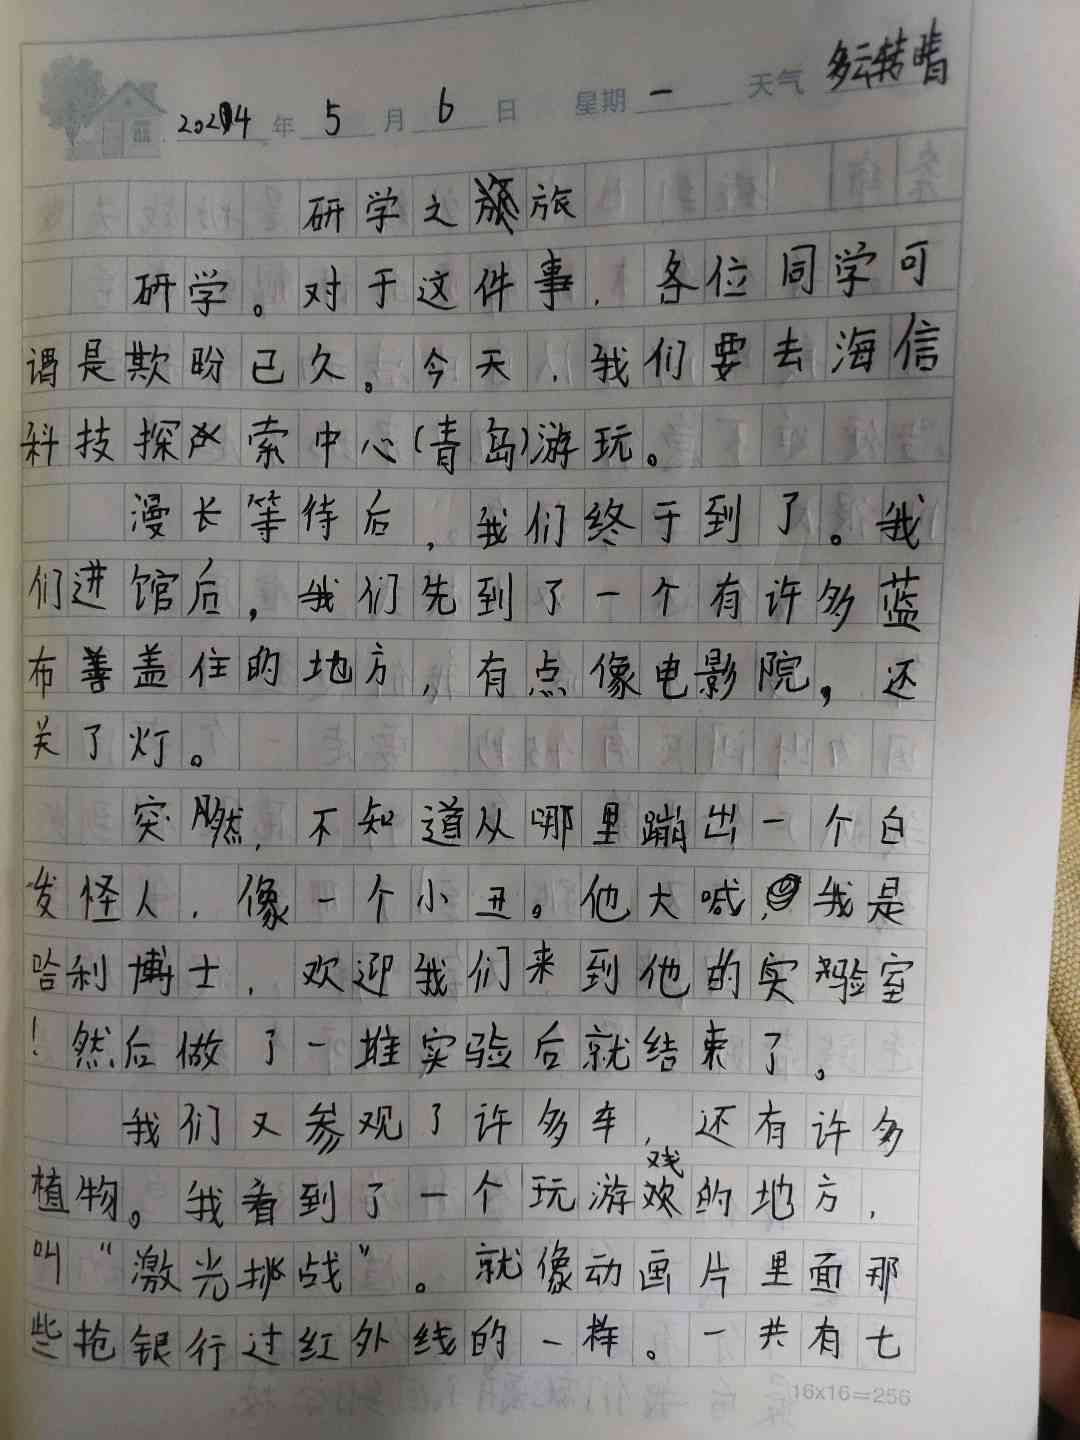 2024年5月6日 星期一 天气 多云转晴
研学之旅
研学。对于这件事，各位同学可
谓是欺盼已久。今天，我们要去海信
科技探索中心(青岛)游玩。
漫长等待后，我们终于到了。我
们进馆后，我们先到了一个有许多蓝
布善盖住的地方，有点像电影院，还
关了灯。
突然，不知道从哪里蹦出一个白
发怪人，像一个小丑。他大喊，我是
哈利博士，欢迎我们来到他的实验室
！然后做了一堆实验后就结束了。
我们又参观了许多车，还有许多
植物。我看到了一个玩游戏的地方，
叫“激光挑战”。就像动画片里面那
些抢银行过红外线的一样。一共有七
16x16=256